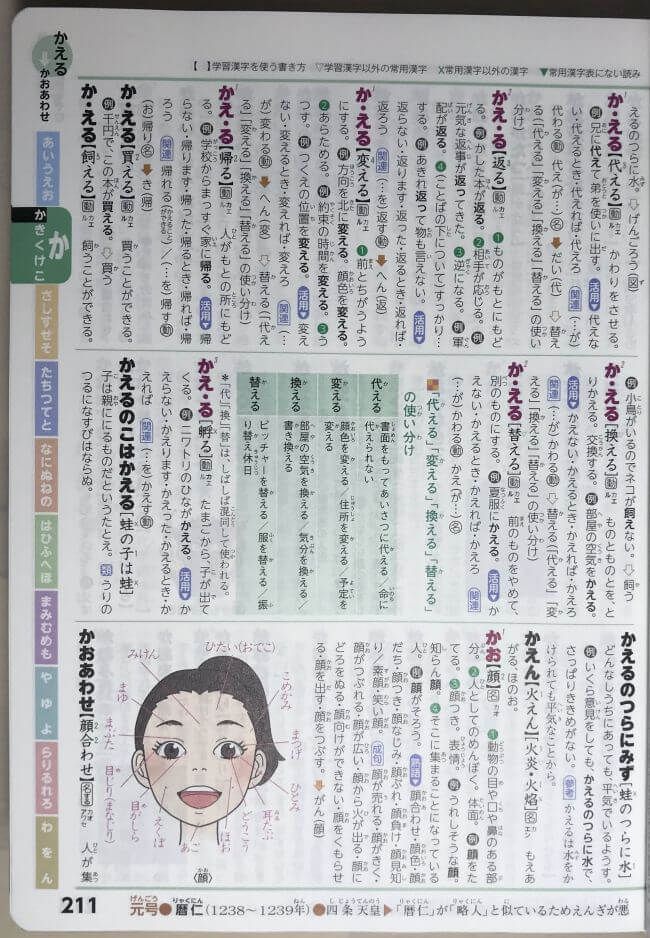 かえる
⇩
かおあわせ
【 】学習漢字を使う書き方 ▽学習漢字以外の常用漢字 X常用漢字以外の漢字 ▼常用漢字表にない読み
あいうえお
か
かきくけこ
さしすせそ
たちつてと
なにぬねの
はひふへほ
まみむめも
や ゆ よ
らりるれろ
わ を ん
えるのつらに水。⇩げんごろう〔図〕
か・える【代える】[動]カエル かわりをさせる。
例 兄に代えて弟を使いに出す。活用▼代えな
い・代えるとき・代えれば・代えろ 関連(…が)
代わる[動] 代え(が…)[名] ➡だい(代) ⇩替え
る(「代える」「変える」「換える」「替える」の使い
分け)
か・える【返る】[動]カエル ❶ものがもとにもど
る。例 かした本が返る。❷相手が応じる。例
元気な返事が返ってきた。❸逆になる。例 軍
配が返る。❹(ことばの下について)すっかり…
する。例 あきれ返って物も言えない。活用▼
返らない・返ります・返った・返るとき・返れば・
返ろう 関連(…を)返す[動] ➡へん(返)
か・える【変える】[動]カエル ❶前とちがうよう
にする。例 方向を北に変える。顔色を変える。
❷あらためる。例 約束の時間を変える。❸う
つす。例 つくえの位置を変える。活用▼変え
ない・変えるとき・変えれば・変えろ 関連(…
が)変わる[動] ➡へん(変) ⇩替える(「代え
る」「変える」「換える」「替える」の使い分け)
か・える【帰る】[動]カエル 人がもとの所にもど
る。例 学校からまっすぐ家に帰る。活用▼帰
らない・帰ります・帰った・帰るとき・帰れば・帰
ろう 関連 帰れる(かえることができる)/(…を)帰す[動]
(お)帰り[名] ➡き(帰)
か・える【買える】[動]カエル 買うことができる。
例 千円で、この本が買える。⇩買う
か・える【飼える】[動]カエル 飼うことができる。
例 小鳥がいるのでネコが飼えない。⇩飼う
か・える【換える】[動]カエル ものとものとを、と
りかえる。交換する。例 部屋の空気をかえる。
活用▼かえない・かえるとき・かえれば・かえろ
関連(…が)かわる[動] ⇩替える(「代える」「変
える」「換える」「替える」の使い分け)
か・える【替える】[動]カエル 前のものをやめて、
別のものにする。例 夏服にかえる。活用▼か
えない・かえるとき・かえれば・かえろ 関連
(…が)かわる[動] かえ(が…)[名]
「代える」「変える」「換える」「替える」
の使い分け
代える 書面をもってあいさつに代える/命に
代えられない
変える 顔色を変える/住所を変える/予定を
変える
換える 部屋の空気を換える/気分を換える/
書き換える
替える ピッチャーを替える/服を替える/振
り替え休日
*「代」「換」「替」は、しばしば混同して使われる。
かえ・る【孵る】[動]カエル たまごから、子が出て
くる。例 ニワトリのひながかえる。活用▼か
えらない・かえります・かえった・かえるとき・か
えれば 関連(…を)かえす[動]
かえるのこはかえる【蛙の子は蛙】
子は親ににるものだというたとえ。類 うりの
つるになすびはならぬ。
かえるのつらにみず【蛙のつらに水】
どんなしうちにあっても、平気でいるようす。
例 いくら意見をしても、かえるのつらに水で、
さっぱりききめがない。参考 かえるは水をか
けられても平気なことから。
かえん【火えん】[火炎・火焰][名]カエン もえあ
がる、ほのお。
かお【顔】[名]カオ ❶動物の目や口や鼻のある部
分。❷人としてのめんぼく。体面。例 顔をた
てる。❸顔つき。表情。例 うれしそうな顔。
知らん顔。❹そこに集まることになっている
人。例 顔がそろう。熟語▼顔合わせ・顔色・顔
だち・顔つき・顔なじみ・顔ぶれ・顔負け・顔見知
り/素顔・笑い顔。成句 顔が売れる・顔がきく・
顔がつぶれる・顔が広い・顔から火が出る・顔に
どろをぬる・顔向けができない・顔をくもらせ
る・顔を出す・顔をつぶす。➡がん(顔)
ひたい(おでこ)
こめかみ
まつげ
ひとみ
耳たぶ
どうこう
ほお
あご
えくぼ
目がしら
目じり(まなじり)
まぶた
まゆ
みけん
〈顔〉
かおあわせ【顔合わせ】[名・する]カオアワセ 人が集
211
元号●暦仁(1238〜1239年)●四条天皇▶「暦仁」が「略人」と似ているためえんぎが悪